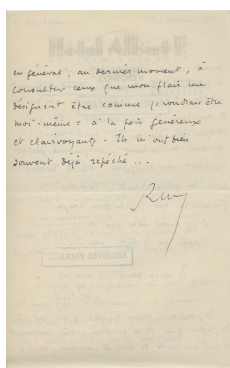 en général, au dernier moment, à
consulter ceux que mon flair me
désignent être comme je voudrais être
moi-même : à la fois généreux
et clairvoyants - Ils m'ont bien
souvent déjà repêché ...